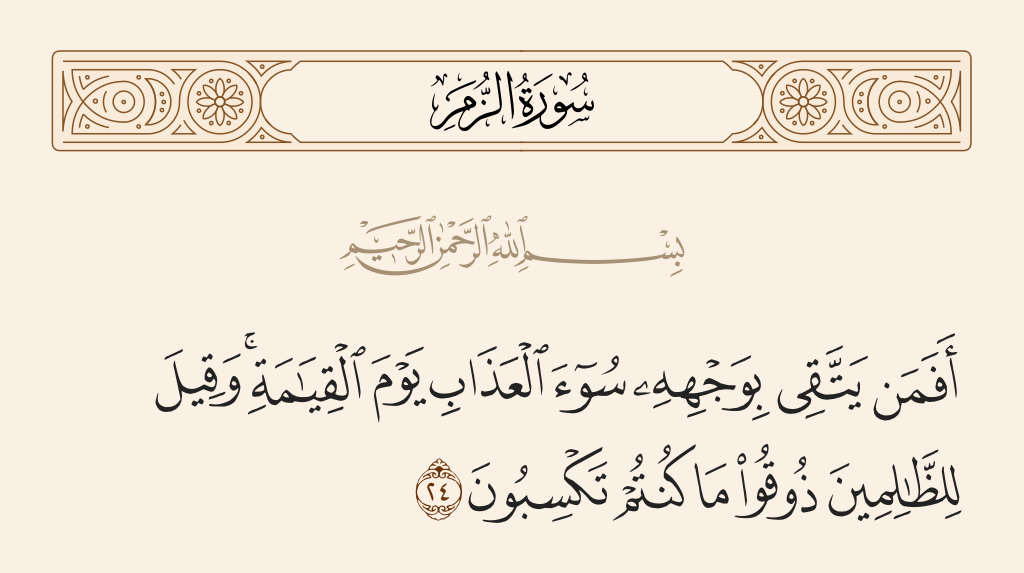 سُورَةُ الزُّمَرِ
بِسْمِ ٱللَّهِ ٱلرَّحْمَٰنِ ٱلرَّحِيمِ
أَفَمَن يَتَّقِى بِوَجْهِهِۦ سُوٓءَ ٱلْعَذَابِ يَوْمَ ٱلْقِيَـٰمَةِ ۚ وَقِيلَ
لِلظَّـٰلِمِينَ ذُوقُوا۟ مَا كُنتُمْ تَكْسِبُونَ ٢٤